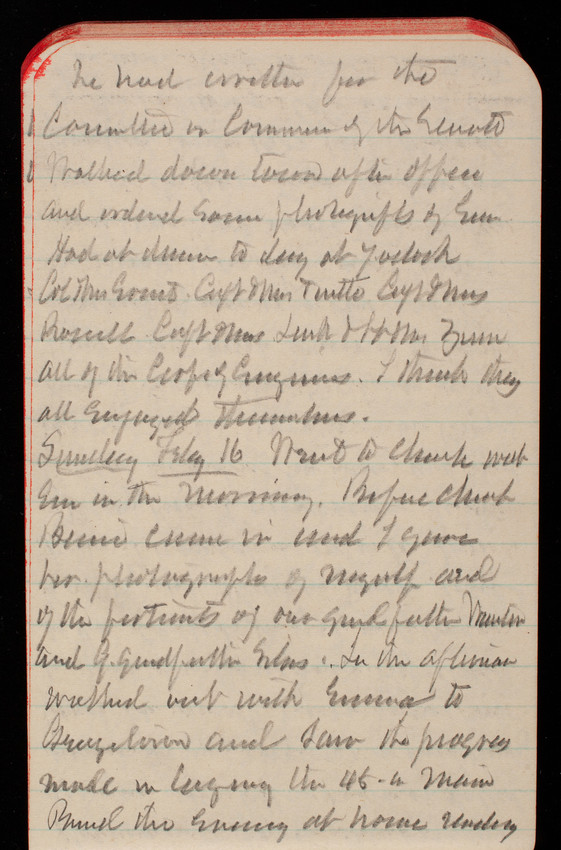 he had written for the
Committee on Commerce of the Senate
Walked down town after office
and ordered some photographs of Em
Had at dinner to day at 7 oclock
Col & Mrs Capt & Mrs Tuttle Capt & Mrs
Rossell Capt & Mrs Lusk & Lt & Mrs
all of the Corps of Engineers. I think they
all enjoyed themselves.
Sunday Feby 16 Went to church with
Em in the morning. Before church
Bessie came in and I gave
her photographs of myself and
of the portraits of our grandfather
and G. grandfather Silas. In the afternoon
walked out with Emma to
Georgetown and saw the progress
made in laying the 48 in main
Read the evening at home reading